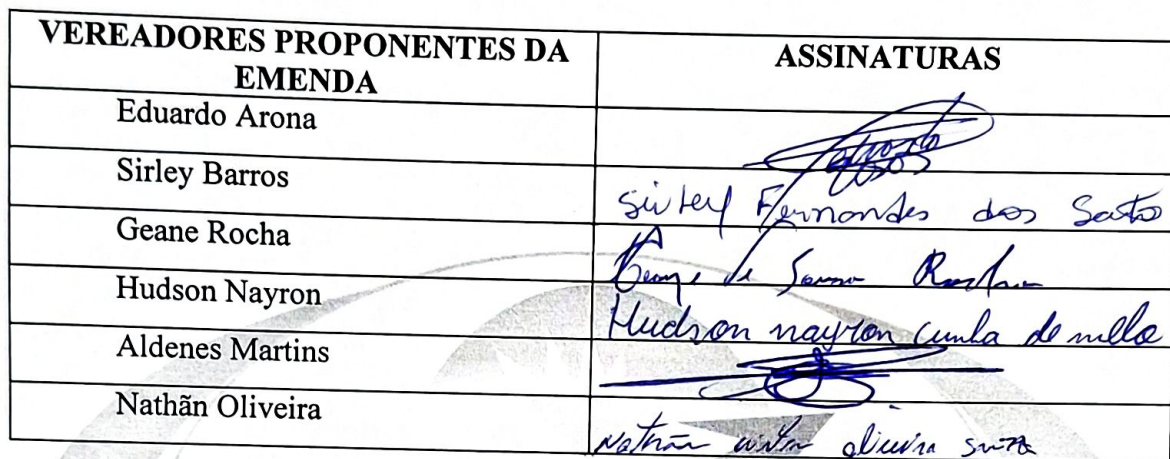 VEREADORES PROPONENTES DA EMENDA
ASSINATURAS
Eduardo Arona
Sirley Barros
Sirley Fernandes dos Santos
Geane Rocha
Geane de Rocha
Hudson Nayron
Hudson nayron cunha de mello
Aldenes Martins
Nathãn Oliveira
Nathãn oliveira